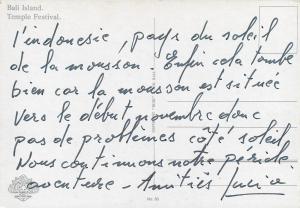 Bali Island.
Temple Festival.
l'indonesie, pays du soleil
de la mousson. Enfin cela tombe
bien car la mousson est située
vers le début novembre donc
pas de problèmes côté soleil
Nous continuons notre périple
aventure - Amitiés Lucia
No. 30